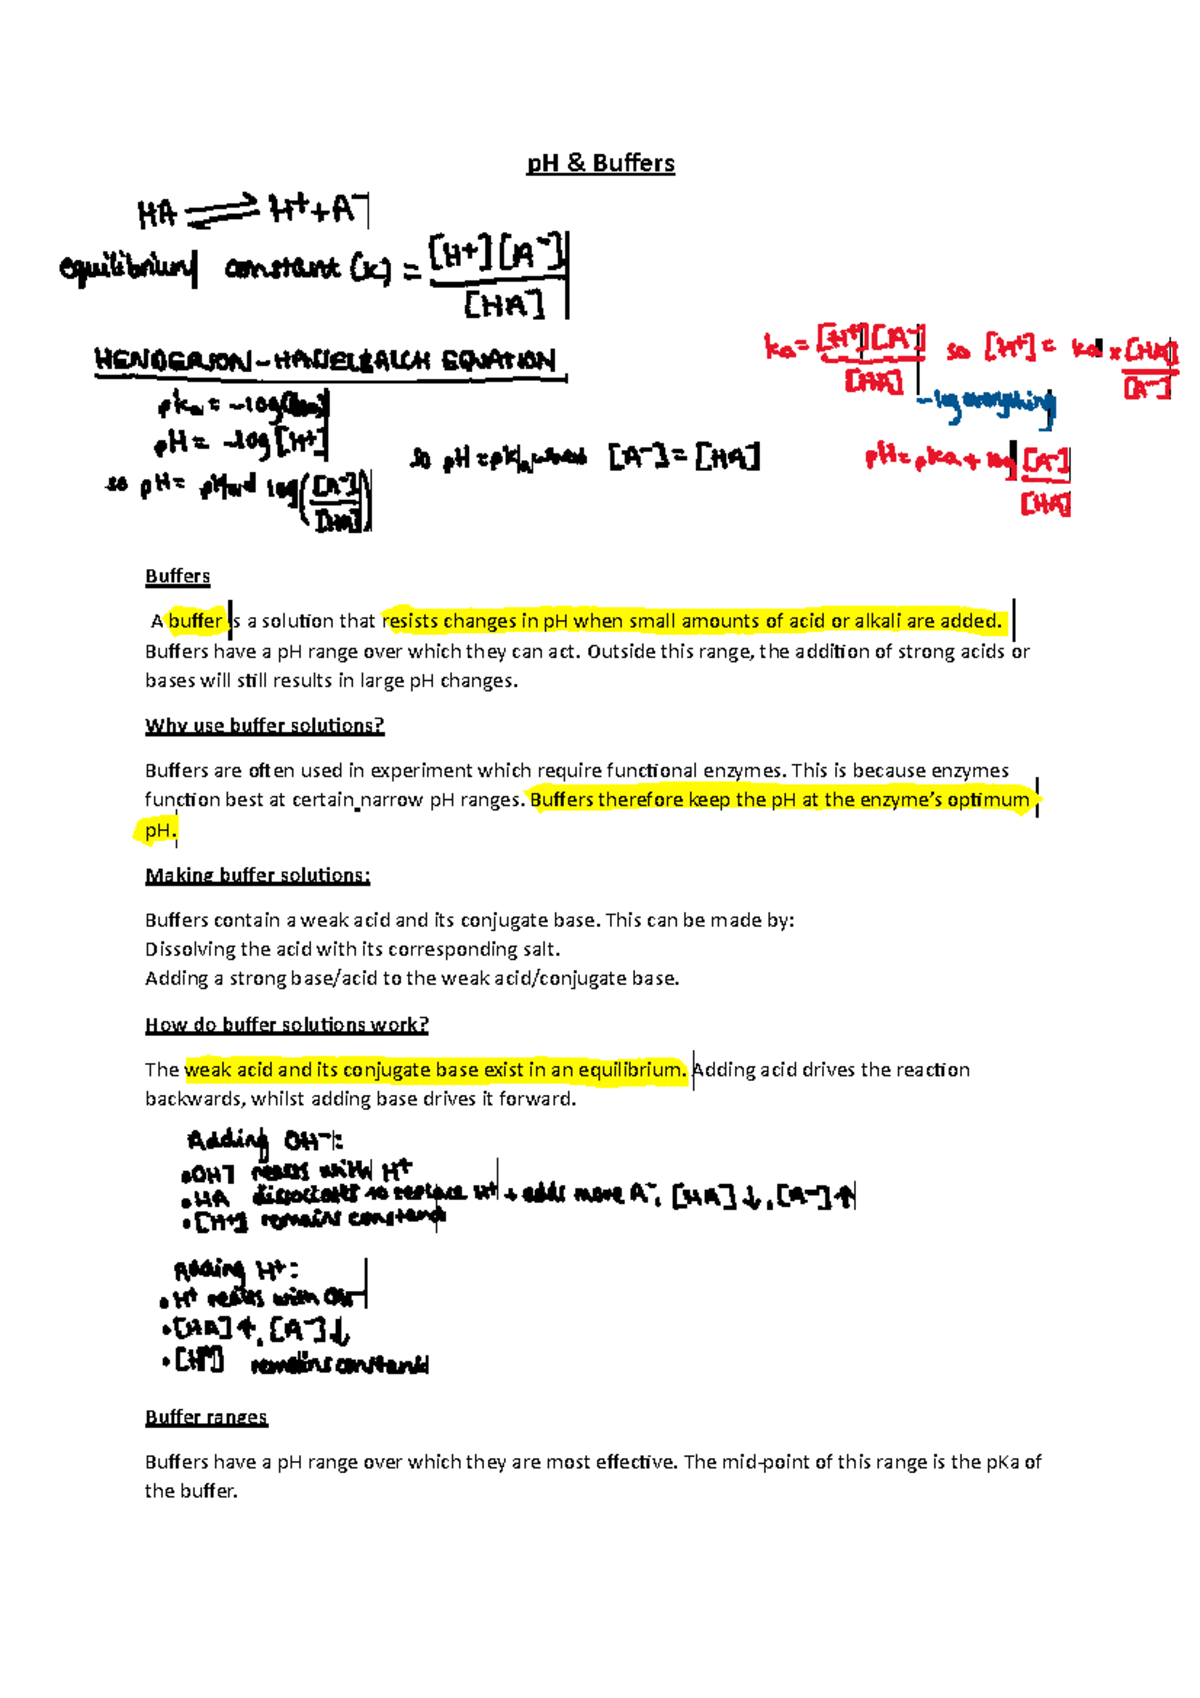 pH & Buffers
HA ⇌ H⁺ + A⁻
equilibrium constant (K) = [H⁺][A⁻] / [HA]
HENDERSON-HASSELBALCH EQUATION
pKa = -log(Ka)
pH = -log[H⁺]
so pH = log([A⁻]/[HA])
so pH = pKa when [A⁻] = [HA]
ka = [H⁺][A⁻] / [HA] so [H⁺] = ka × [HA] / [A⁻]
-log everything
pH = pKa + log [A⁻] / [HA]
Buffers
A buffer is a solution that resists changes in pH when small amounts of acid or alkali are added.
Buffers have a pH range over which they can act. Outside this range, the addition of strong acids or
bases will still results in large pH changes.
Why use buffer solutions?
Buffers are often used in experiment which require functional enzymes. This is because enzymes
function best at certain narrow pH ranges. Buffers therefore keep the pH at the enzyme's optimum
pH.
Making buffer solutions:
Buffers contain a weak acid and its conjugate base. This can be made by:
Dissolving the acid with its corresponding salt.
Adding a strong base/acid to the weak acid/conjugate base.
How do buffer solutions work?
The weak acid and its conjugate base exist in an equilibrium. Adding acid drives the reaction
backwards, whilst adding base drives it forward.
Adding OH⁻:
•OH⁻ reacts with H⁺
•HA dissociates to replace H⁺ + adds more A⁻, [HA]↓, [A⁻]↑
•[H⁺] remains constant
Adding H⁺:
•H⁺ reacts with OH⁻
•[HA]↑, [A⁻]↓
•[H⁺] remains constant
Buffer ranges
Buffers have a pH range over which they are most effective. The mid-point of this range is the pKa of
the buffer.